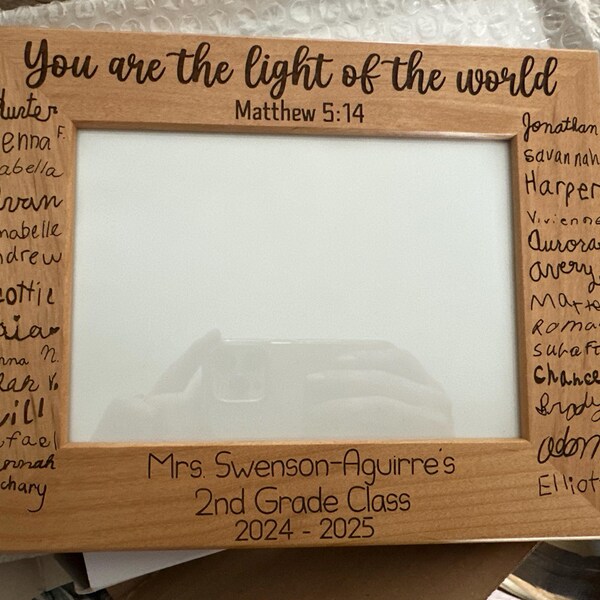 You are the light of the world
Matthew 5:14
enna F.
abella
van
nabelle
ndrew
cottie
ria
nna N.
will
fael
annah
chary
Jonathan
savannah
Harper
Vivienne
Aurora
avery
Roma
Chance
Brody
adam
Elliot
Mrs. Swenson-Aguirre's
2nd Grade Class
2024 - 2025